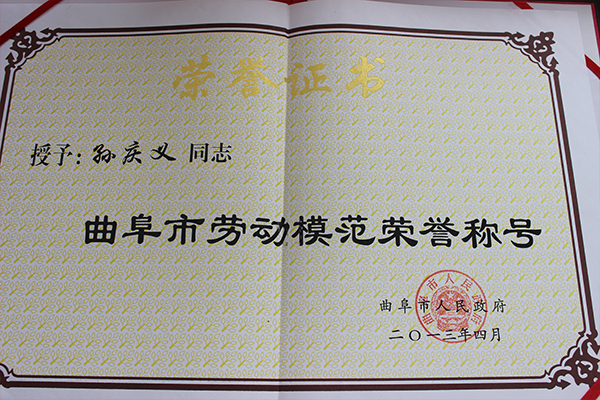 荣誉证书
授予：孙庆义 同志
曲阜市劳动模范荣誉称号
曲阜市人民政府
二〇一三年四月
曲阜市人民政府